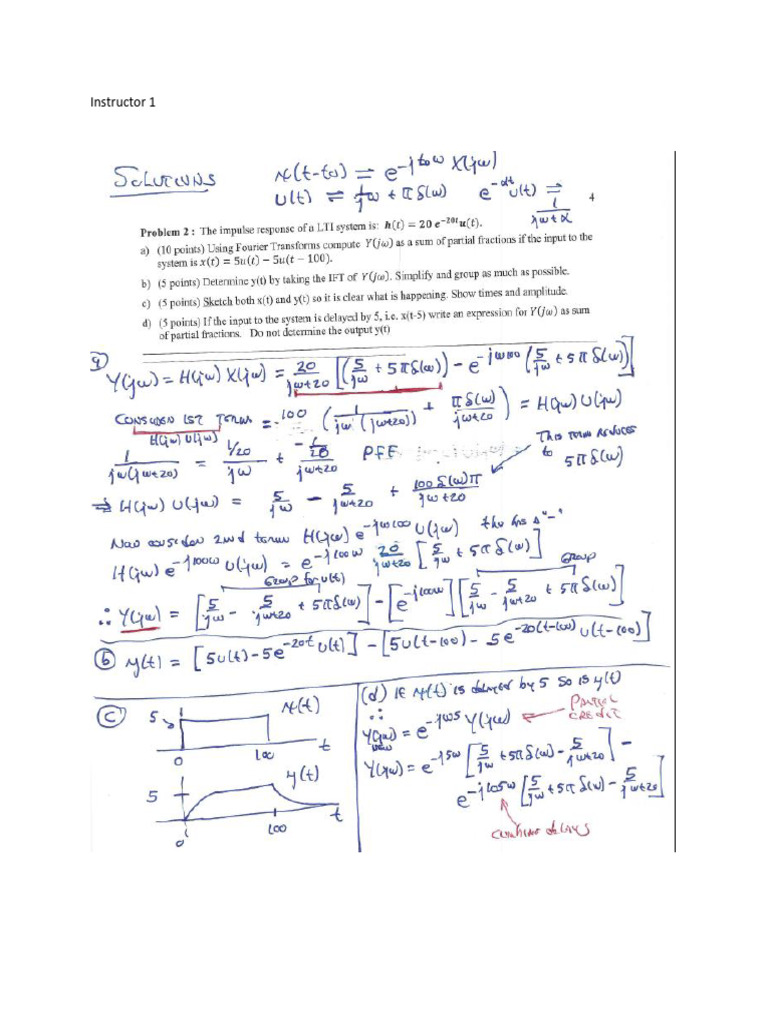 Instructor 1
SOLUTIONS x(t-to) ⇌ e^{-jtoω} X(jω)
U(t) ⇌ 1/jω + πδ(ω) e^{-αt}U(t) ⇌ 1/(jω+α)
4
Problem 2 : The impulse response of a LTI system is: h(t) = 20 e^{-20t}u(t).
a) (10 points) Using Fourier Transforms compute Y(jω) as a sum of partial fractions if the input to the
system is x(t) = 5u(t) − 5u(t − 100).
b) (5 points) Determine y(t) by taking the IFT of Y(jω). Simplify and group as much as possible.
c) (5 points) Sketch both x(t) and y(t) so it is clear what is happening. Show times and amplitude.
d) (5 points) If the input to the system is delayed by 5, i.e. x(t-5) write an expression for Y(jω) as sum
of partial fractions. Do not determine the output y(t)
a)
Y(jω) = H(jω) X(jω) = 20/(jω+20) [(5/jω + 5πδ(ω)) − e^{-jω100} (5/jω + 5πδ(ω))]
CONSIDER 1ST TERM = 100 (1/(jω(jω+20)) + πδ(ω)/(jω+20)) = H(jω) U(jω)
H(jω) U(jω)
1/(jω(jω+20)) = (1/20)/jω + (-1/20)/(jω+20) PFE
THIS TERM REDUCES
to 5πδ(ω)
⇒ H(jω) U(jω) = 5/jω − 5/(jω+20) + 100δ(ω)π/(jω+20)
Now consider 2nd term H(jω) e^{-jω100} U(jω) "-"
H(jω) e^{-j100ω} U(jω) = e^{-j100ω} 20/(jω+20) [5/jω + 5πδ(ω)]
GROUP for u(t) GROUP
∴ Y(jω) = [5/jω − 5/(jω+20) + 5πδ(ω)] − [e^{-j100ω}] [5/jω − 5/(jω+20) + 5πδ(ω)]
(b) y(t) = [5U(t) − 5e^{-20t} U(t)] − [5U(t-100) − 5e^{-20(t-100)} U(t-100)]
(c)
5 x(t)
0 100 t
5 y(t)
0 100 t
(d) IF x(t) is delayed by 5 so is y(t)
∴ PARTIAL CREDIT
Y(jω) = e^{-jω5} Y(jω)
new
Y(jω) = e^{-j5ω} [5/jω + 5πδ(ω) − 5/(jω+20)] −
e^{-j105ω} [5/jω + 5πδ(ω) − 5/(jω+20)]
combine delays